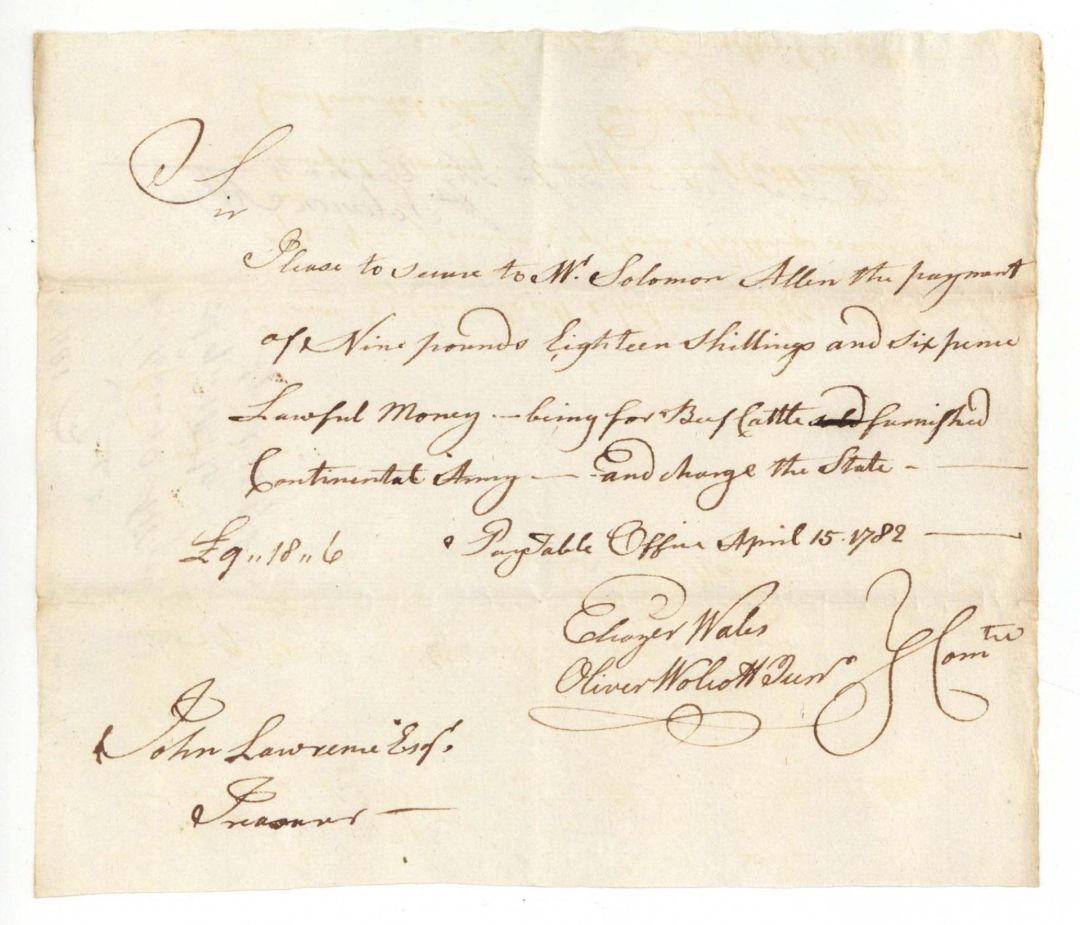 Sir
Please to secure to Mr. Solomon Allen the payment
of Nine pounds Eighteen Shillings and six pence
Lawful Money — being for Beef Cattle sold furnished
Continental Army — and charge the State —
£9"18"6 Pay Table Office April 15. 1782 —
Eleazer Wales
Oliver Wolcott Junr } Comtee
John Lawrence Esqr.
Treasurer —